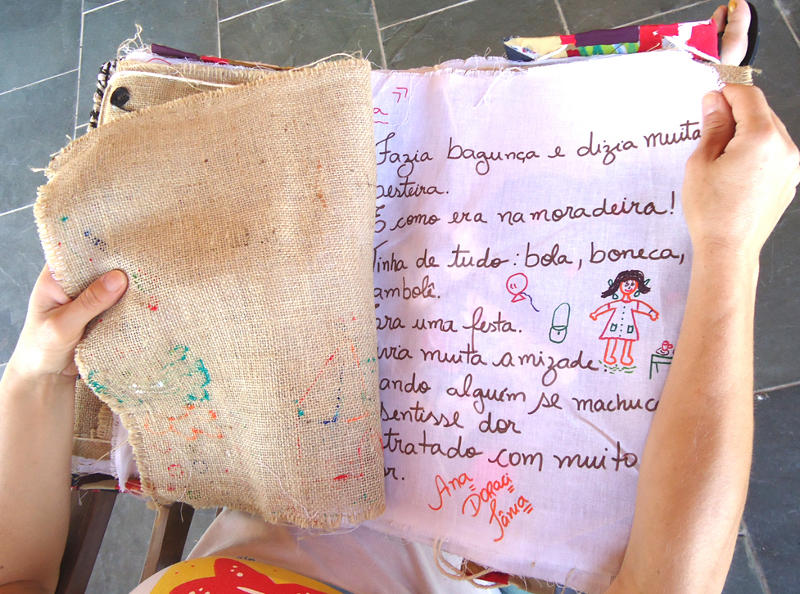 a
Fazia bagunça e dizia muita
besteira.
E como era namoradeira!
Tinha de tudo: bola, boneca,
ambolê.
ra uma festa.
uvia muita amizade.
ando alguém se machuca
sentisse dor
tratado com muito
or.
Ana
Dora
Tânia